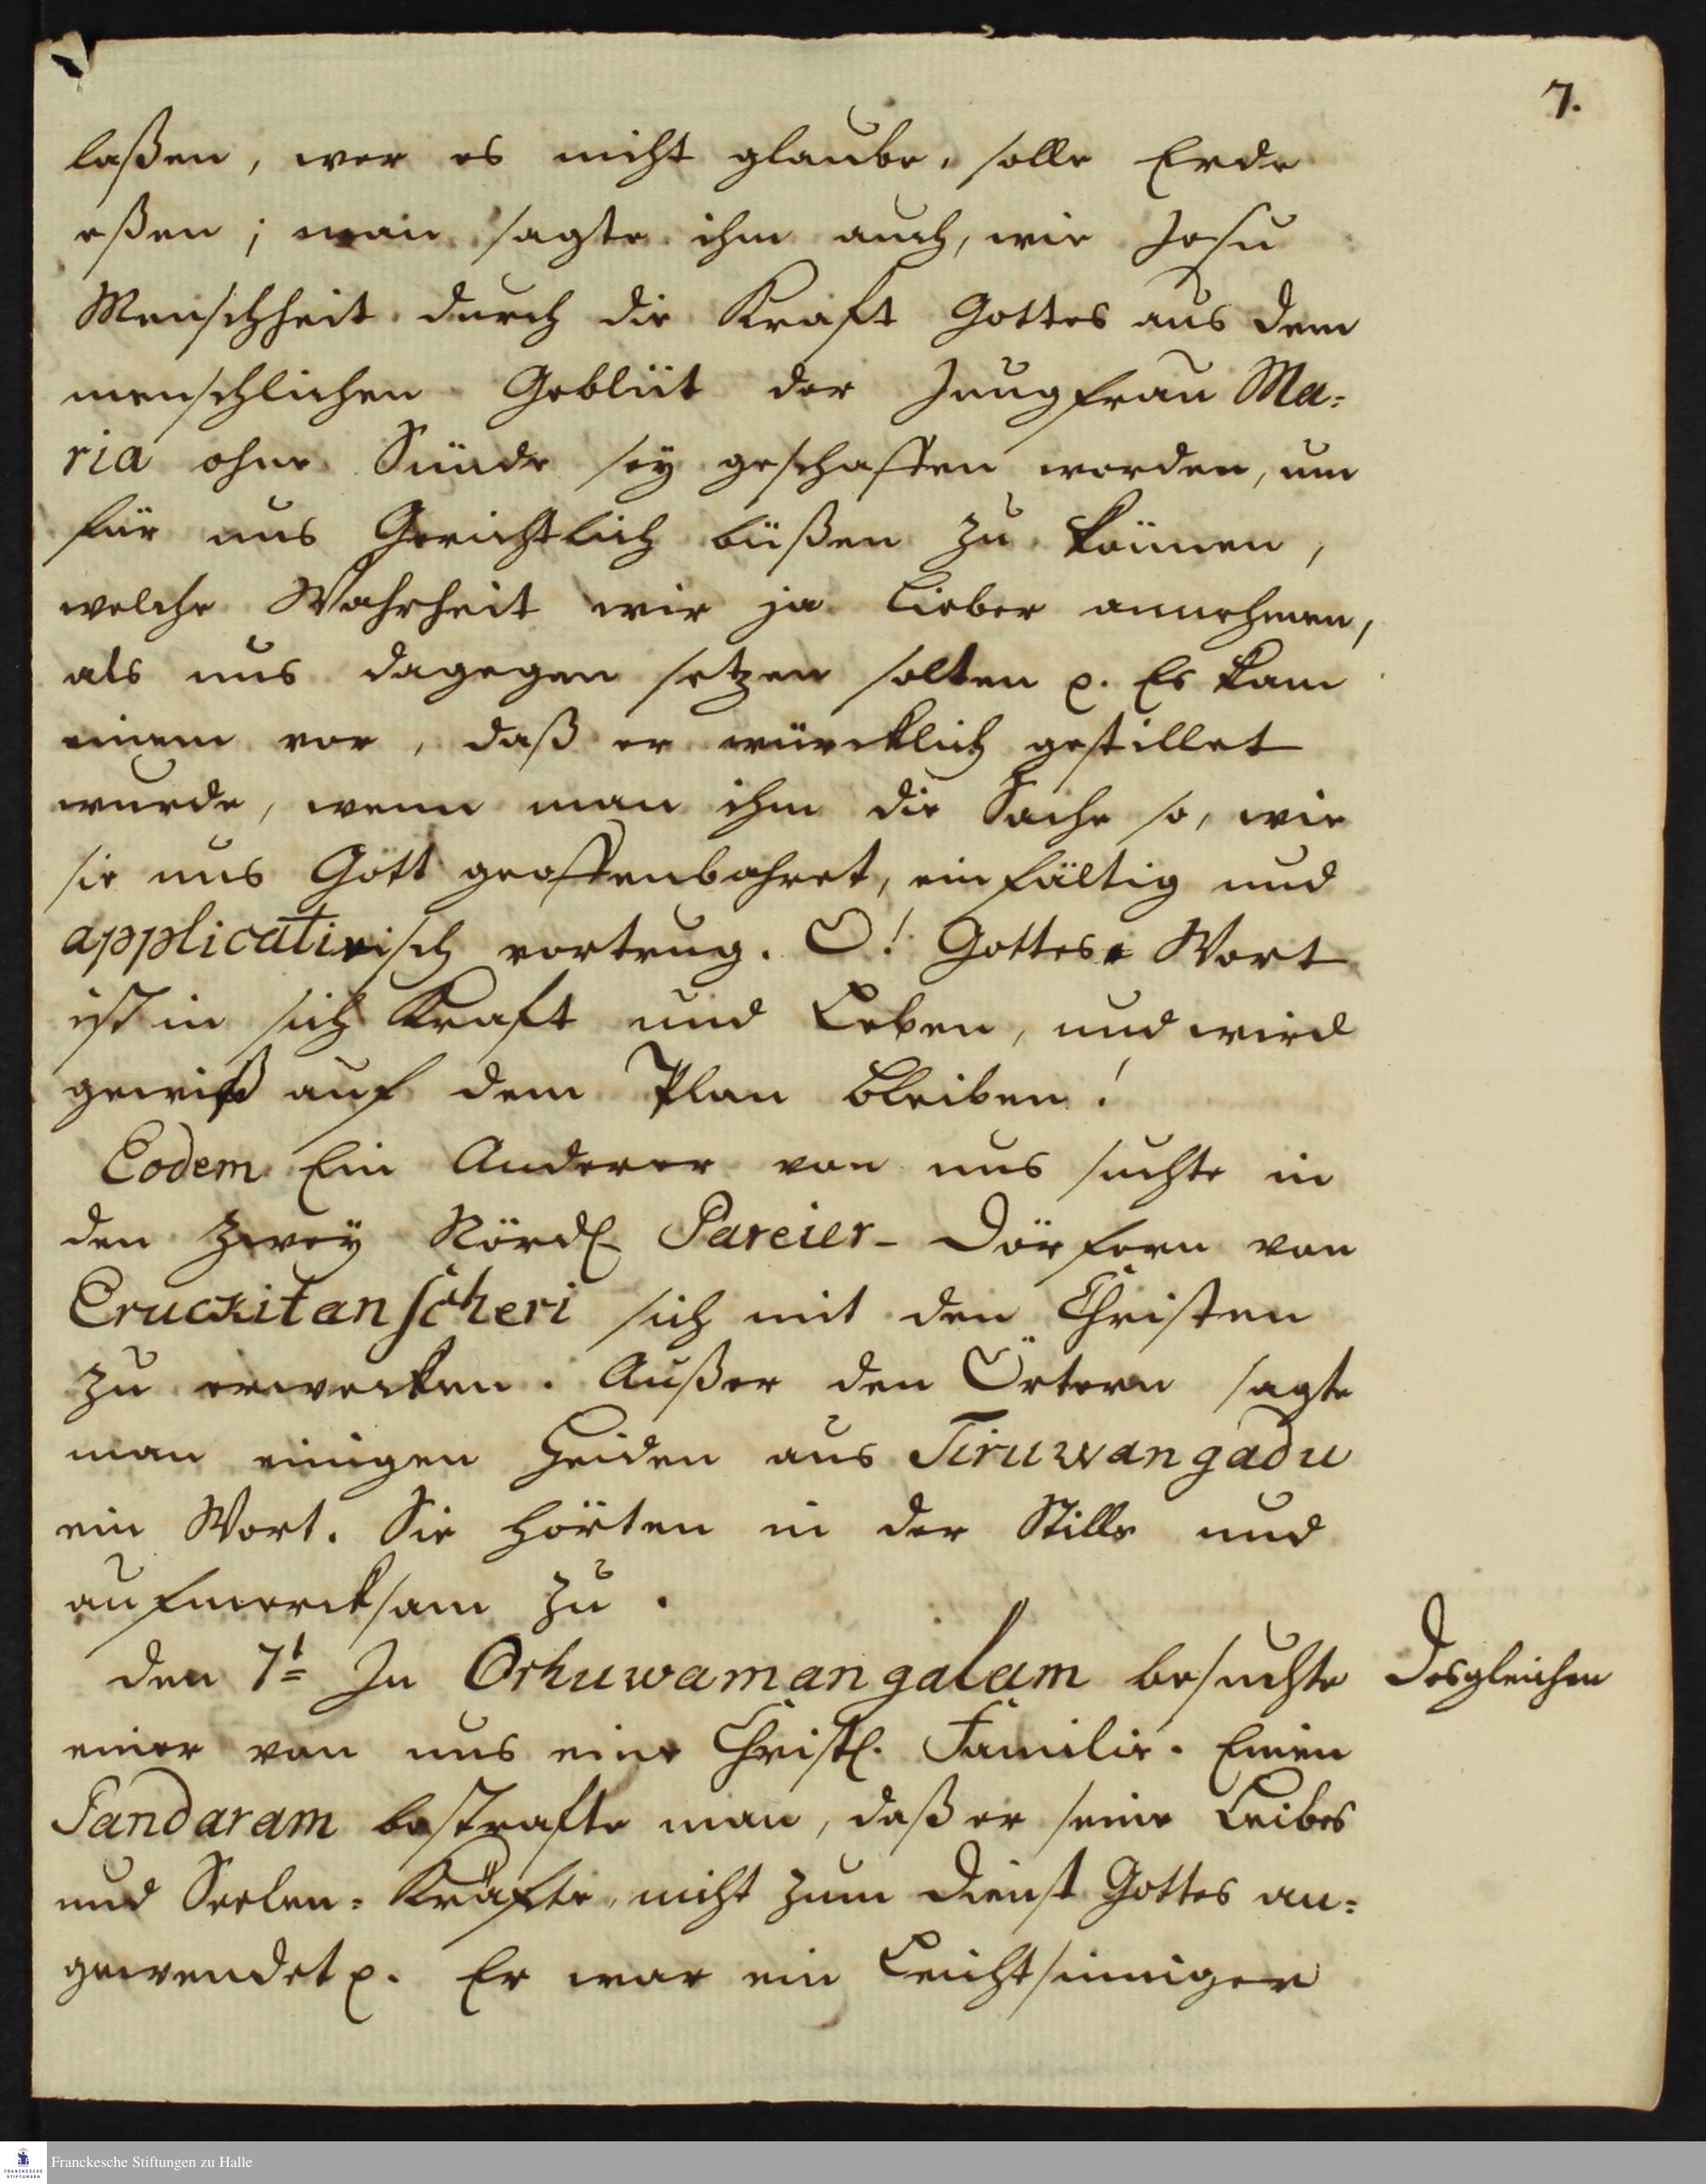 7.
laßen, wer es nicht glaube, solle Erde
eßen; man sagte ihm auch, wie Jesu
Menschheit durch die Kraft Gottes aus dem
menschlichen Geblüt der Jungfrau Ma=
ria ohne Sünde sey geschaffen worden, um
für uns Gerichtlich büßen zu können,
welche Wahrheit wir ja lieber annehmen,
als uns dagegen setzen solten p. Es kam
einem vor, daß er würcklich gestillet
wurde, wenn man ihm die Sache so, wie
sie uns Gott geoffenbahret, einfältig und
applicativisch vortrug. O! Gottes Wort
ist in sich Kraft und Leben, und wird
gewiß auf dem Plan bleiben!
Eodem Ein Anderer von uns suchte in
den zwey Nördl. Pareier- Dörfern von
Eruckitanscheri sich mit den Christen
zu erwecken. Außer den Örtern sagte
man einigen Heiden aus Tiruwangadu
ein Wort. Sie hörten in der Stille und
aufmercksam zu.
den 7t. In Orhuwamangalam besuchte
Desgleichen
einer von uns eine Christl. Familie. Einen
Pandaram bestrafte man, daß er seine Leibes
und Seelen= Kräfte, nicht zum Dienst Gottes an=
gewendet p. Er war ein Leichtsinniger
Franckesche Stiftungen zu Halle